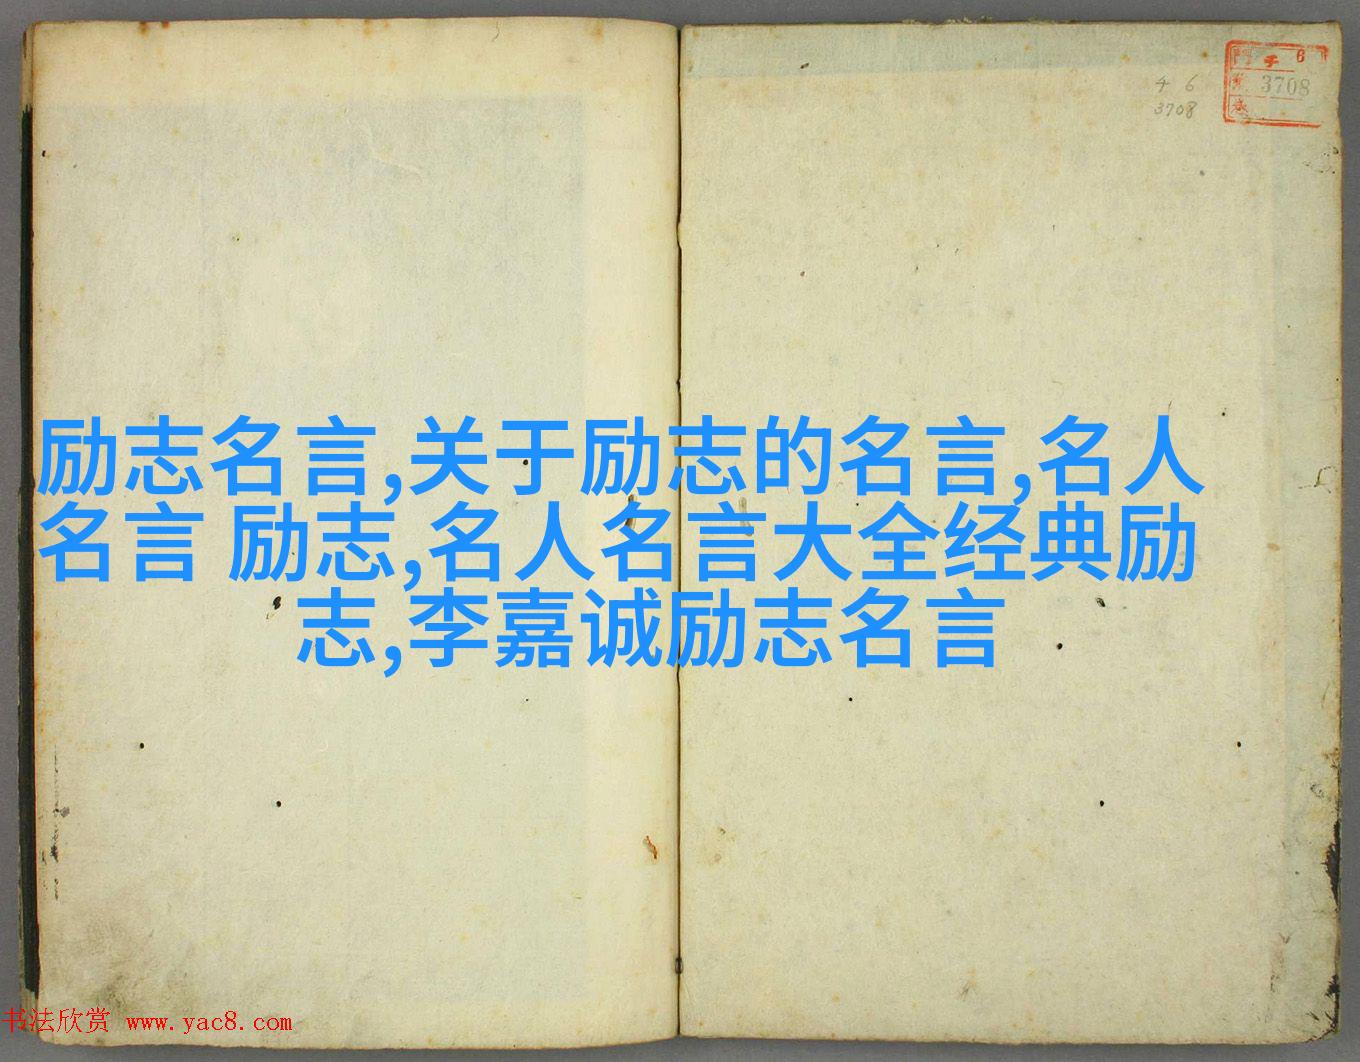 4 6
3708
6
3708
励志名言,关于励志的名言,名人
名言 励志,名人名言大全经典励
志,李嘉诚励志名言
书法欣赏 www.yac8.com